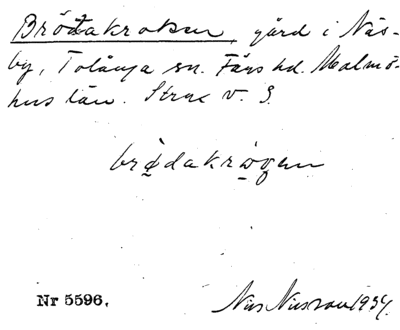 Brödakroken, gård i Näs-
by, Tolånga sn. Färs hd. Malmö-
hus län. Strax v. 3.
brødakrogen
Nr 5596.
Nils Nilsson 1934.